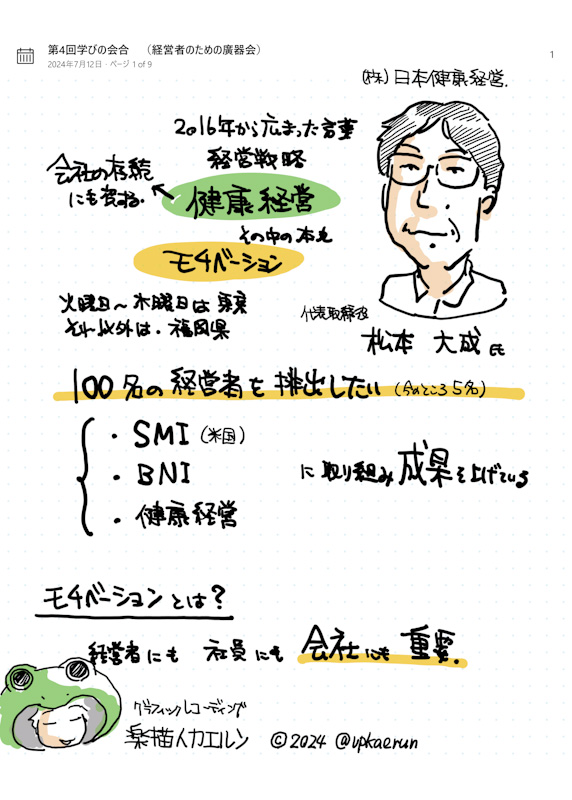 第4回学びの会合 （経営者のための廣器会）
2024年7月12日・ページ 1 of 9
1
(株)日本健康経営.
2016年から広まった言葉
経営戦略
会社の存続
にも寄与.
健康経営
その中の本丸
モチベーション
火曜日〜木曜日は東京
それ以外は・福岡県
代表取締役
松本 大成 氏
100名の経営者を排出したい（今のところ5名）
・SMI（米国）
・BNI
・健康経営
に取り組み成果を上げている
モチベーションとは？
経営者にも 社員にも 会社にも 重要.
グラフィックレコーディング
楽描人カエルン ©2024 @vpkaerun